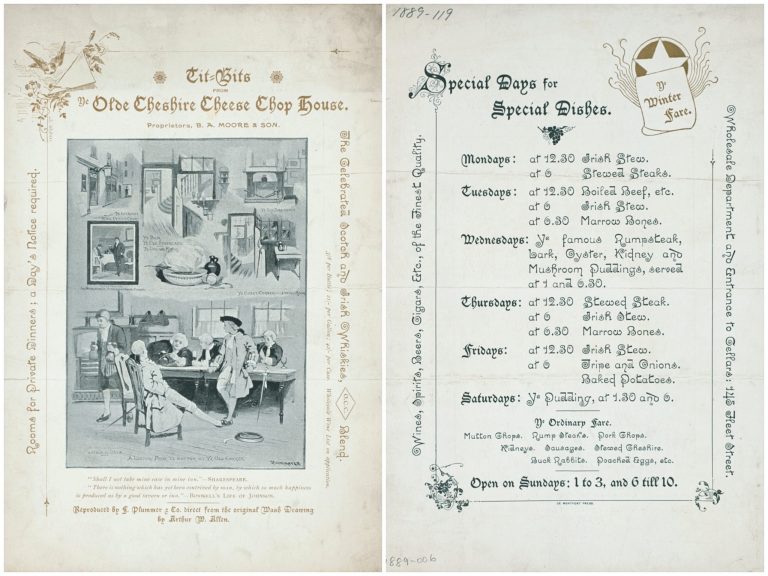 Tit-Bits
FROM
Ye Olde Cheshire Cheese Chop House.
Proprietors, B. A. MOORE & SON.
Rooms for Private Dinners: a Day's Notice required.
The Celebrated Scotch and Irish Whiskies,
Blend.
"Shall I not take mine ease in mine inn."—SHAKESPEARE.
"There is nothing which has yet been contrived by man, by which so much happiness
is produced as by a good tavern or inn."—BOSWELL'S LIFE OF JOHNSON.
Reproduced by F. Plummer & Co. direct from the original Wash Drawing
by Arthur W. Allen.
1889-119
Special Days for
Special Dishes.
Ye
Winter
Fare.
Wines, Spirits, Beers, Cigars, &c., of the Finest Quality.
Mondays: at 12.30 Irish Stew.
at 6 Stewed Steaks.
Tuesdays: at 12.30 Boiled Beef, etc.
at 6 Irish Stew.
at 6.30 Marrow Bones.
Wednesdays: Ye famous Rumpsteak,
Lark, Oyster, Kidney and
Mushroom Puddings, served
at 1 and 6.30.
Thursdays: at 12.30 Stewed Steak.
at 6 Irish Stew.
at 6.30 Marrow Bones.
Fridays: at 12.30 Irish Stew.
at 6 Tripe and Onions.
Baked Potatoes.
Saturdays: Ye Pudding, at 1.30 and 6.
Ye Ordinary Fare.
Mutton Chops. Rump Steaks. Pork Chops.
Kidneys. Sausages. Stewed Cheshire.
Buck Rabbits. Poached Eggs, etc.
Open on Sundays: 1 to 3, and 6 till 10.
Wholesale Department and Entrance to Cellars: 145 Fleet Street.
1889-006